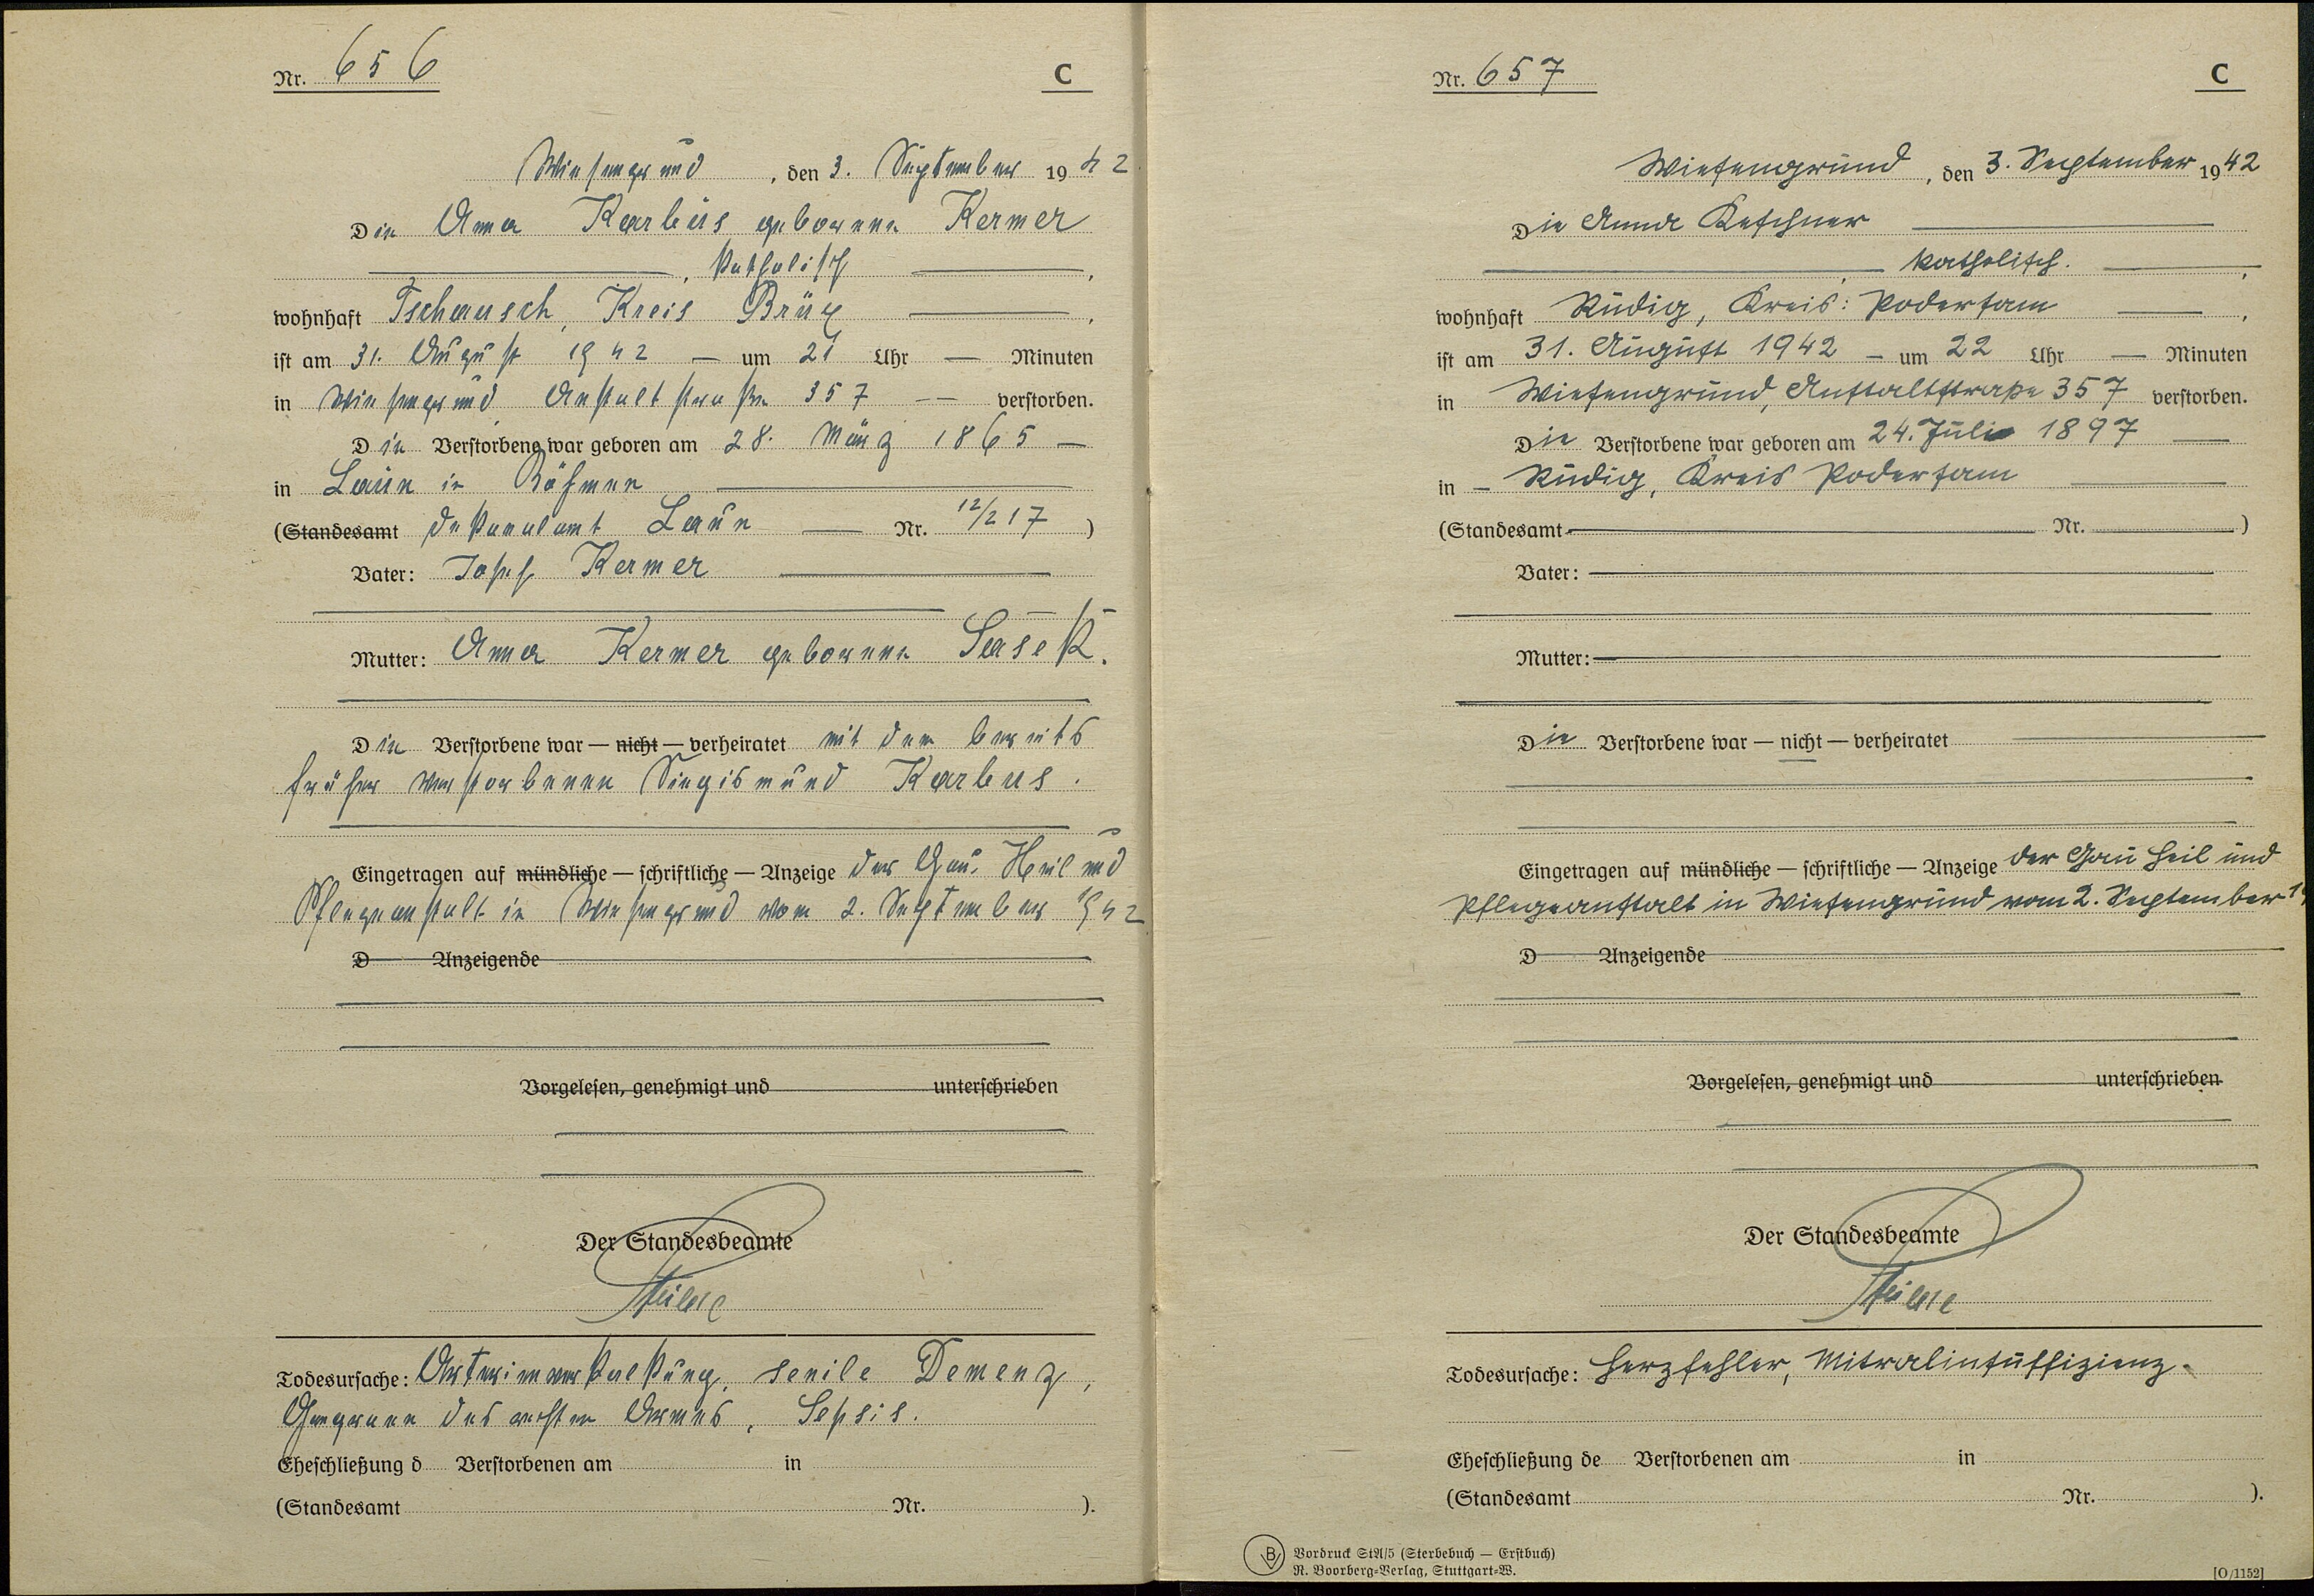 Nr. 656
C
Wiesengrund, den 3. September 1942
Die Anna Karbus geborene Kermer
, katholisch,
wohnhaft Tschausch, Kreis Brüx,
ist am 31. August 1942 — um 21 Uhr — Minuten
in Wiesengrund Anstaltstraße 357 — verstorben.
Die Verstorbene war geboren am 28. März 1865 —
in Laun in Böhmen
(Standesamt Dekanalamt Laun — Nr. 12/217)
Vater: Josef Kermer
Mutter: Anna Kermer geborene Sašek.
Die Verstorbene war — nicht — verheiratet mit dem bereits
früher verstorbenen Siegismund Karbus.
Eingetragen auf mündliche — schriftliche — Anzeige der Gau. Heil und
Pflegeanstalt in Wiesengrund vom 2. September 1942
D Anzeigende
Vorgelesen, genehmigt und unterschrieben
Der Standesbeamte
Todesursache: Arterienverkalkung, senile Demenz,
Gangraen des rechten Armes, Sepsis.
Eheschließung d Verstorbenen am in
(Standesamt Nr. ).
Nr. 657
C
Wiesengrund, den 3. September 1942
Die Anna Keschner
katholisch.,
wohnhaft Rudig, Kreis: Podersam,
ist am 31. August 1942 — um 22 Uhr — Minuten
in Wiesengrund, Anstaltstraße 357 verstorben.
Die Verstorbene war geboren am 24. Juli 1897 —
in — Rudig, Kreis Podersam
(Standesamt Nr. )
Vater:
Mutter:
Die Verstorbene war — nicht — verheiratet
Eingetragen auf mündliche — schriftliche — Anzeige der Gau Heil und
Pflegeanstalt in Wiesengrund vom 2. September 19
D Anzeigende
Vorgelesen, genehmigt und unterschrieben
Der Standesbeamte
Todesursache: Herzfehler, Mitralinsuffizienz.
Eheschließung de Verstorbenen am in
(Standesamt Nr. ).
B Vordruck StA/5 (Sterbebuch — Erstbuch)
R. Boorberg-Verlag, Stuttgart-W.
[O/1152]